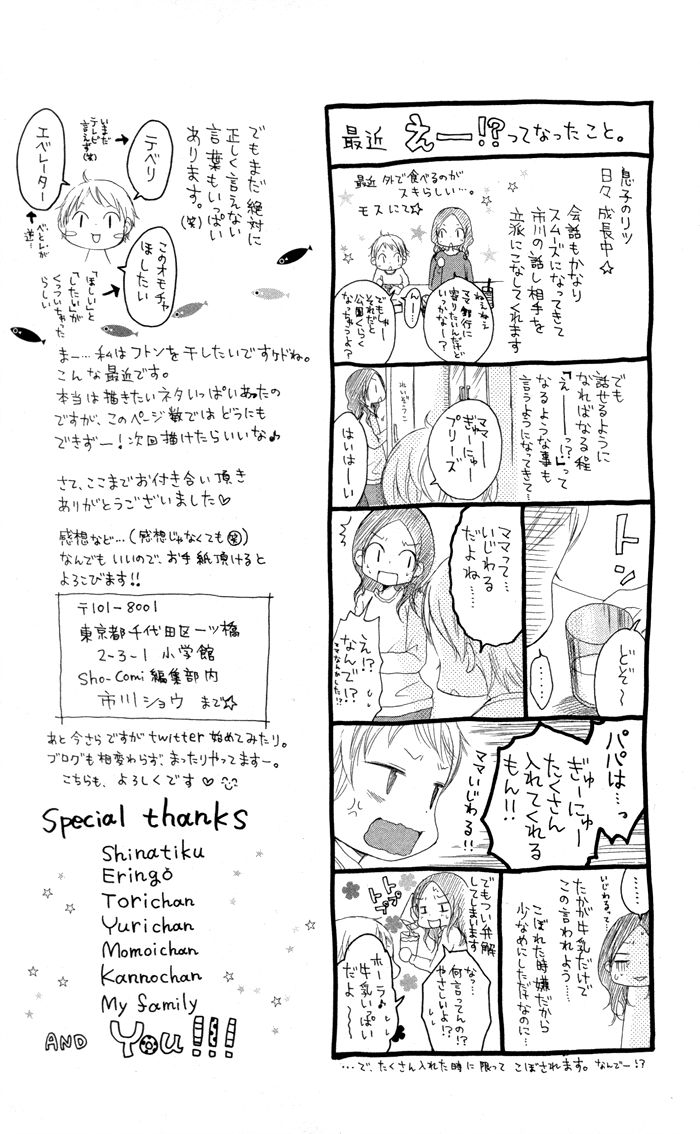 最近 えー!?ってなったこと。
息子のリツ
日々 成長中☆
会話もかなり
スムーズになってきて
市川の話し相手を
立派にこなしてくれます
最近 外で食べるのが
スキらしい…。
モスにて☆
ねえねえ
ママ銀行に
寄りたいんだけど
いっかなー?
んー…
でもしゃー
それだと
公園くらく
なっちゃうよ?
でも
話せるように
なればなる程
「えーーっ!?」って
なるような事も
言うようになってきて…
れいぞうこ
ママー
ぎゅーにゅー
プリーズ
はいはーい
トン
どぞ〜
……
ママって…
いじわる
だよね……
え!?
なんで!?
ママなんかした!?
パパは…っ
ぎゅーにゅー
たくさん
入れてくれる
もん!!
ママいじわる!!
……
いじわるって…
たかが牛乳だけで
この言われよう…
こぼれた時嫌だから
少なめにしただけなのに…
でもつい弁解
してしまいます
トプトプ
なっ…
何言ってんの!?
やさしいよ!?
ホーラ♪
牛乳いっぱい
だよ〜
…で、たくさん入れた時に限って こぼされます。なんでー!?
でもまだ絶対に
正しく言えない
言葉もいっぱい
あります。(笑)
テベリ
いまだ
テレビと
言えず(笑)
エベレーター
べとれが
逆!
このオモチャ
ほしたい
「ほしい」と
「したい」が
くっついちゃった
らしい
まー…私はフトンを干したいですケドね。
こんな最近です。
本当は描きたいネタいっぱいあったの
ですが、このページ数ではどうにも
できずー!次回描けたらいいな♪
さて、ここまでお付き合い頂き
ありがとうございました♡
感想など…(感想じゃなくても㊗)
なんでもいいので、お手紙頂けると
よろこびます!!
〒101-8001
東京都千代田区一ツ橋
2-3-1 小学館
Sho-Comi編集部内
市川ショウ まで☆
あと今さらですがtwitter始めてみたり。
ブログも相変わらず、まったりやってますー。
こちらも、よろしくです♡
Special thanks
Shinatiku
Eringo
Torichan
Yurichan
Momoichan
Kannochan
My family
AND You!!!